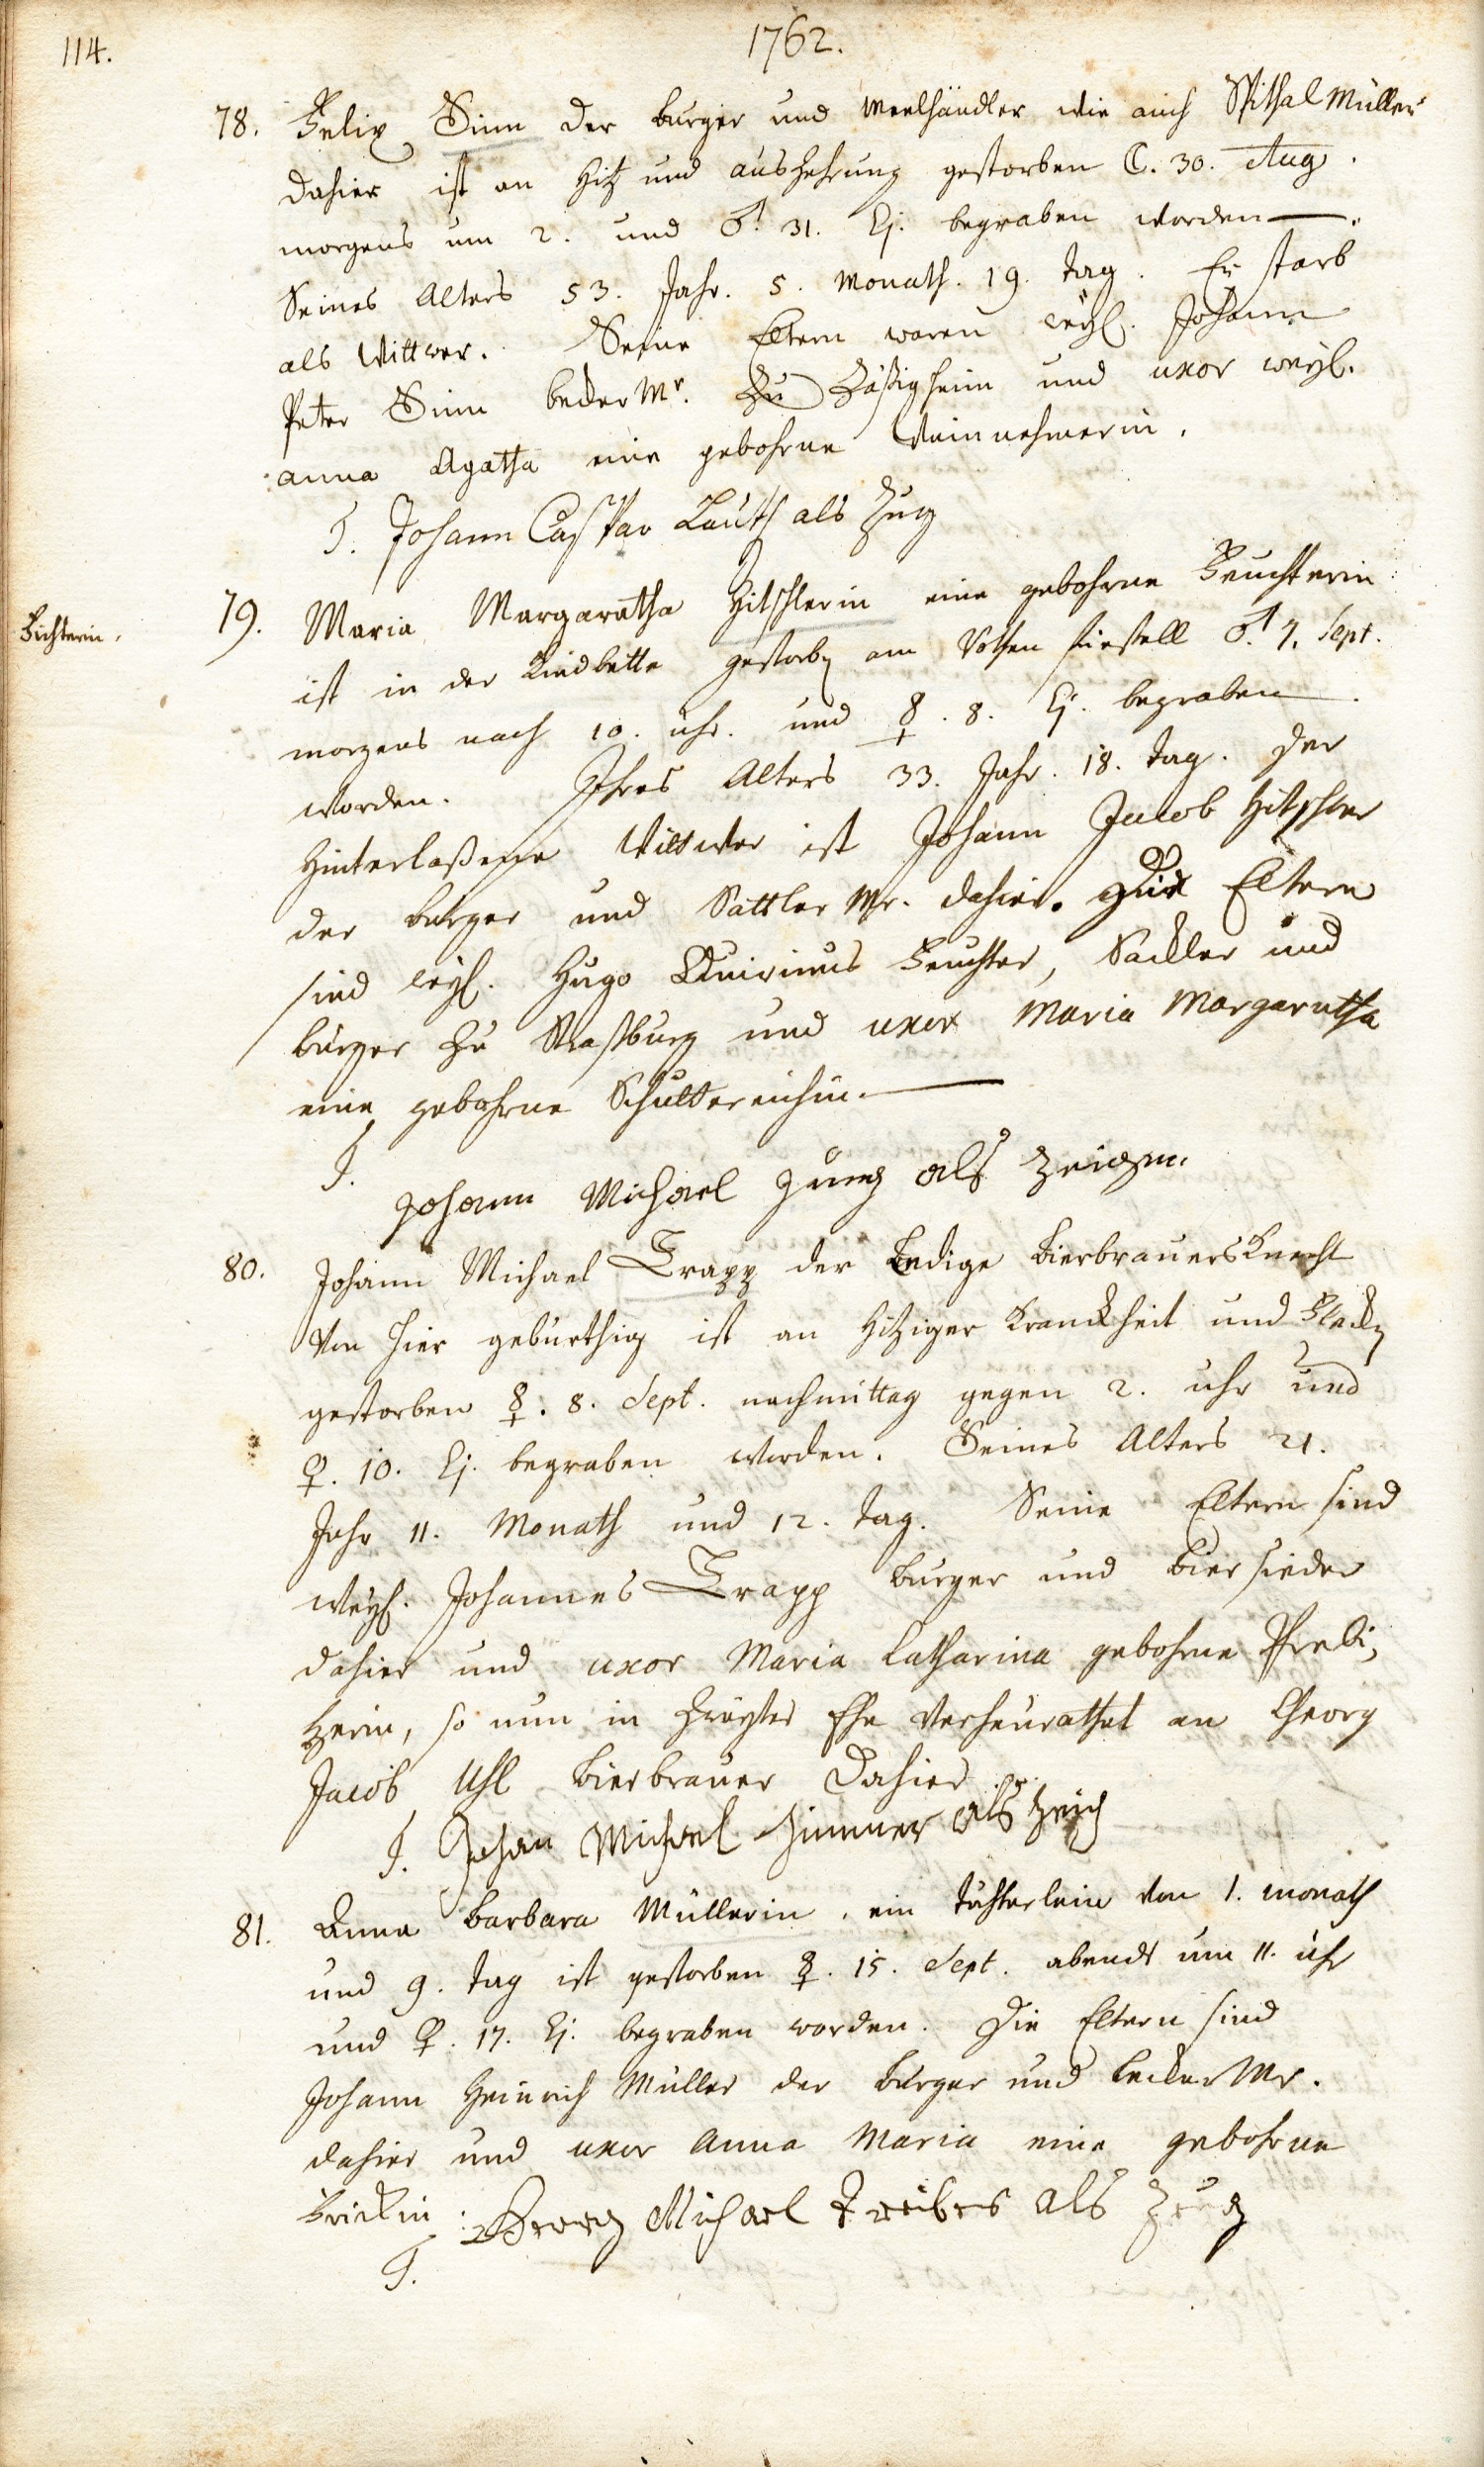 114.
1762.
78. Felix Sinn der burger und Meelhändler wie auch Spithal Müller
dahier ist an Hitz und auszehrung gestorben ☾. 30. Aug.
morgens um 2. und ♂. 31. Ej. begraben worden.
Seines Alters 53. Jahr. 5. Monath. 19. tag. Er starb
als Wittwer. Seine Eltern waren weyl. Johann
Peter Sinn becker Mr. zu und uxor weyl.
anna Agatha eine gebohrne Weinnehmerin.
T. Johann Caspar Lauth als Zeug
Fichterin.
79. Maria Margaretha Hitschlerin eine gebohrne Feuchterin
ist in der Kindbette gestorben am Rothen ♂. 7. Sept.
morgens nach 10. uhr. und ☿. 8. Ej. begraben
worden. Ihres Alters 33. Jahr. 18. tag. Der
Hinterlaßene Wittwer ist Johann Jacob Hitschler
der burger und Sattler Mr. dahier. Die Eltern
sind weyl. Hugo Quirinus Feuchter, Sattler und
burger zu Straßburg und uxor Maria Margaretha
eine gebohrne
T.
Johann Michael Jung als Zeigen.
80. Johann Michael Trapp der Ledige bierbrauersknecht
von hier gebürthig ist an Hitziger Kranckheit und Flecken
gestorben ☿. 8. Sept. nachmittag gegen 2. uhr und
♀. 10. Ej. begraben worden. Seines Alters 21.
Jahr 11. Monath und 12. tag. Seine Eltern sind
weyl. Johannes Trapp burger und biersieder
dahier und uxor Maria Catharina gebohrne
so nun in zweyter Ehe verheurathet an Georg
Jacob Uhl bierbrauer dahier.
T. Johan Michael Zimmer als Zeig
81. Anna Barbara Müllerin, ein töchterlein von 1. monath
und 9. tag ist gestorben ☿. 15. Sept. abends um 11. uhr
und ♀. 17. Ej. begraben worden. Die Eltern sind
Johann Heinrich Müller der burger und becker Mr.
dahier und uxor Anna Maria eine gebohrne
Frickin: Georg Michael Treiber als Zeug
T.